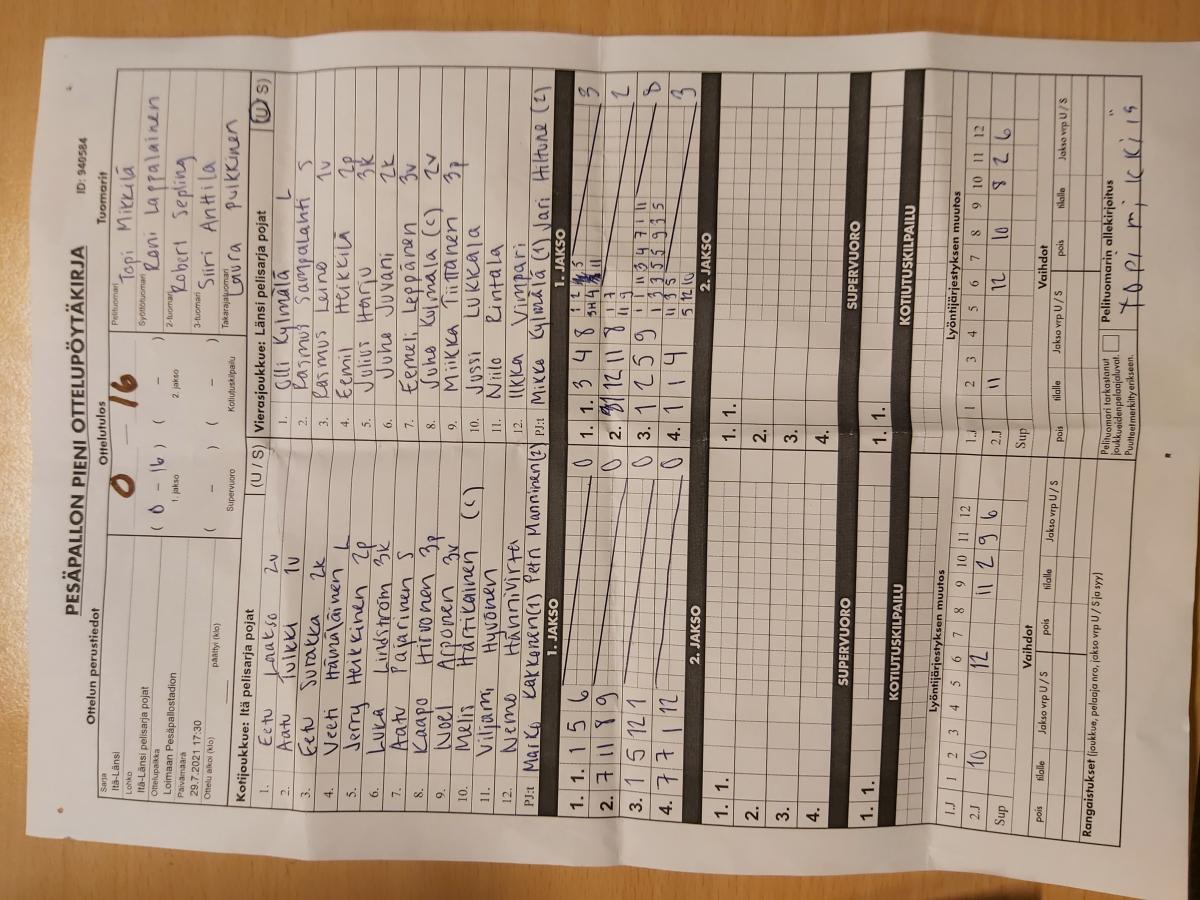 PESÄPALLON PIENI OTTELUPÖYTÄKIRJA
ID: 940584
Ottelun perustiedot
Ottelutulos
Tuomarit
Sarja
Itä-Länsi
Lohko
Itä-Länsi pelisarja pojat
Ottelupaikka
Loimaan Pesäpallostadion
Päivämäärä
29.7.2021 17:30
Ottelu alkoi (klo)
päättyi (klo)
0 – 16
( 0 – 16 ) ( – )
1. jakso 2. jakso
( – ) ( – )
Supervuoro Kotiutuskilpailu
Pelituomari
Topi Mikkilä
Syöttötuomari
Roni Lappalainen
2-tuomari
Robert Sepling
3-tuomari
Siiri Anttila
Takarajatuomari
Laura Pulkkinen
Kotijoukkue: Itä pelisarja pojat (U / S)
1. Eetu Laakso 2v
2. Aatu Tulkki 1v
3. Eetu Surakka 2k
4. Veeti Hämäläinen L
5. Jerry Heikkinen 2p
6. Luka Lindström 3k
7. Aatu Pajarinen S
8. Kaapo Hirvonen 3p
9. Noel Arponen 3v
10. Melis Härtikainen (c)
11. Viljami Hyvönen
12. Nemo Hännivirta
PJ:t Marko Kakkonen(1) Petri Manninen(2)
Vierasjoukkue: Länsi pelisarja pojat (U / S)
1. Olli Kylmälä L
2. Rasmus Sampalahti S
3. Rasmus Leino 1v
4. Eemil Heikkilä 2p
5. Julius Harju 3k
6. Juho Juvani 2k
7. Eemeli Leppänen 3v
8. Juho Kujmala (c) 2v
9. Miikka Tiittanen 3p
10. Jussi Lukkala
11. Niilo Rintala
12. Ilkka Vimpari
PJ:t Mikko Kylmälä (1) Jari Hilture (2)
1. JAKSO
1. 1. 1 5 6 0
2. 7 11 8 9 0
3. 1 5 12 1 0
4. 7 7 1 12 0
2. JAKSO
1. 1.
2.
3.
4.
SUPERVUORO
1. 1.
KOTIUTUSKILPAILU
1. 1.
1. JAKSO
1. 1. 3 4 8 3
2. 12 11 8 2
3. 1 2 5 9 8
4. 1 1 4 3
2. JAKSO
1. 1.
2.
3.
4.
SUPERVUORO
1. 1.
KOTIUTUSKILPAILU
1. 1.
Lyöntijärjestyksen muutos
1.J 1 2 3 4 5 6 7 8 9 10 11 12
2.J 10 12 11 2 9 6
Sup
Vaihdot
pois tilalle Jakso vrp U / S pois tilalle Jakso vrp U / S
Lyöntijärjestyksen muutos
1.J 1 2 3 4 5 6 7 8 9 10 11 12
2.J 11 12 10 8 2 6
Sup
Vaihdot
pois tilalle Jakso vrp U / S pois tilalle Jakso vrp U / S
Rangaistukset (joukkue, pelaaja nro, jakso vrp U / S ja syy)
Pelituomari tarkastanut
joukkueiden pelaajaluvat.
Puutteet merkitty erikseen.
Pelituomarin allekirjoitus